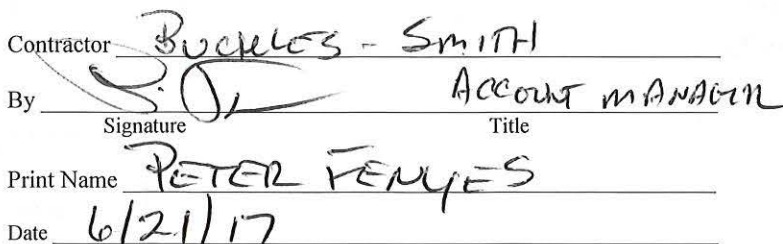 Contractor Buckles - Smith
By Account Manager
Signature Title
Print Name Peter Fenyes
Date 6/21/17